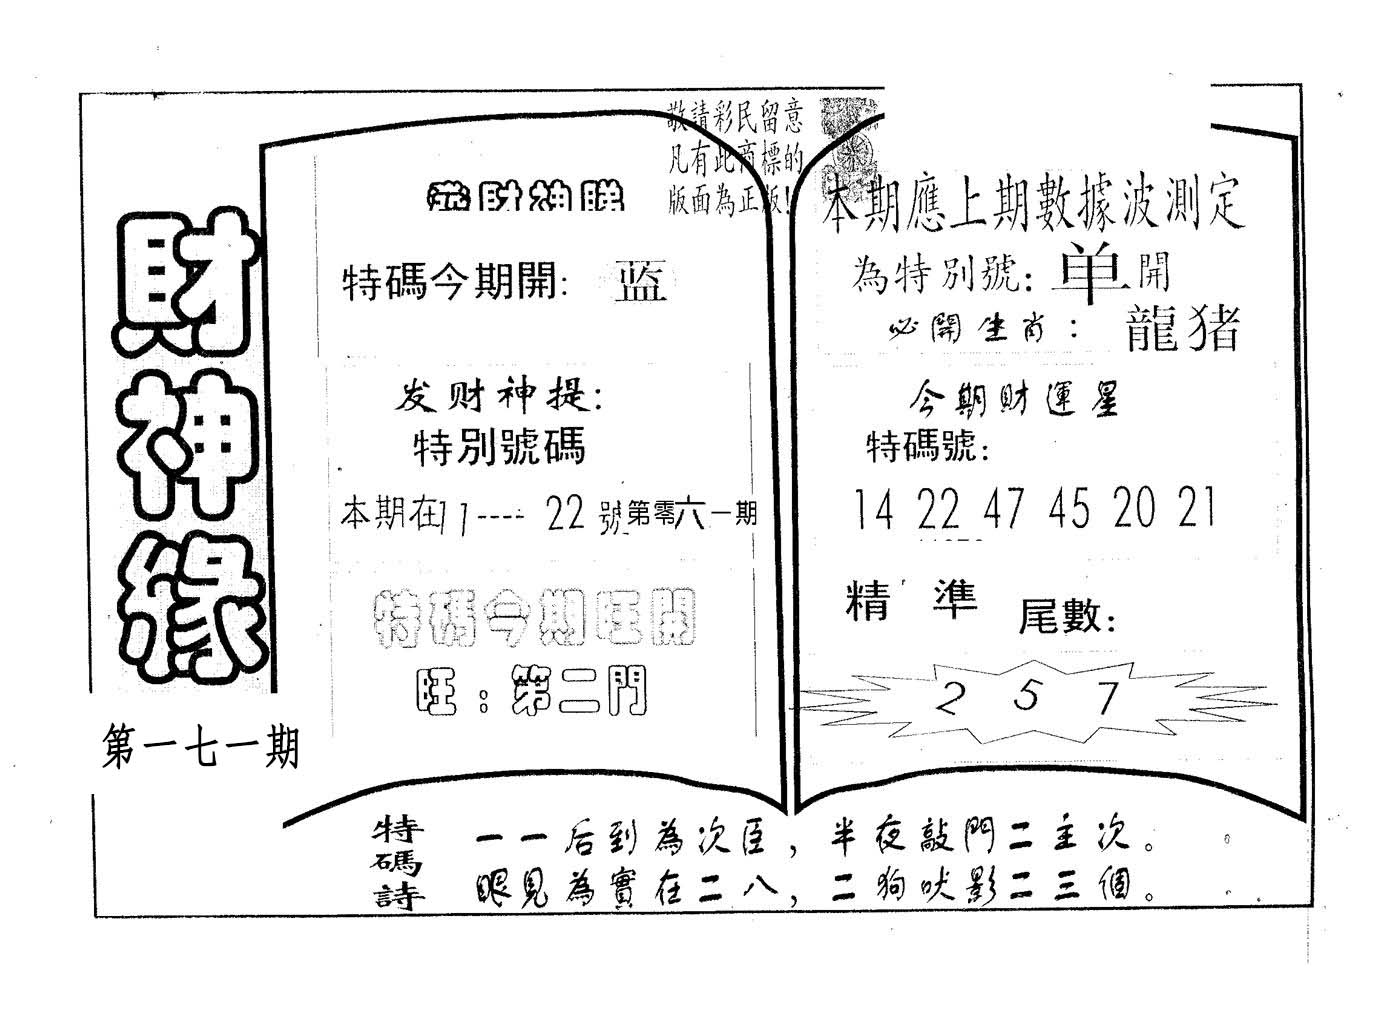 財神緣
第一七一期
敬請彩民留意
凡有此商標的
版面為正版!
財神
特碼今期開: 蓝
发财神提:
特別號碼
本期在11----22號第零六一期
特碼今期旺開
旺:第二門
本期應上期數據波測定
為特別號:单開
必開生肖:龍猪
今期財運星
特碼號:
14 22 47 45 20 21
精準 尾數:
2 5 7
特碼詩
一一后到為次臣,半夜敲門二主次。
眼見為實在二八,二狗吠影二三個。